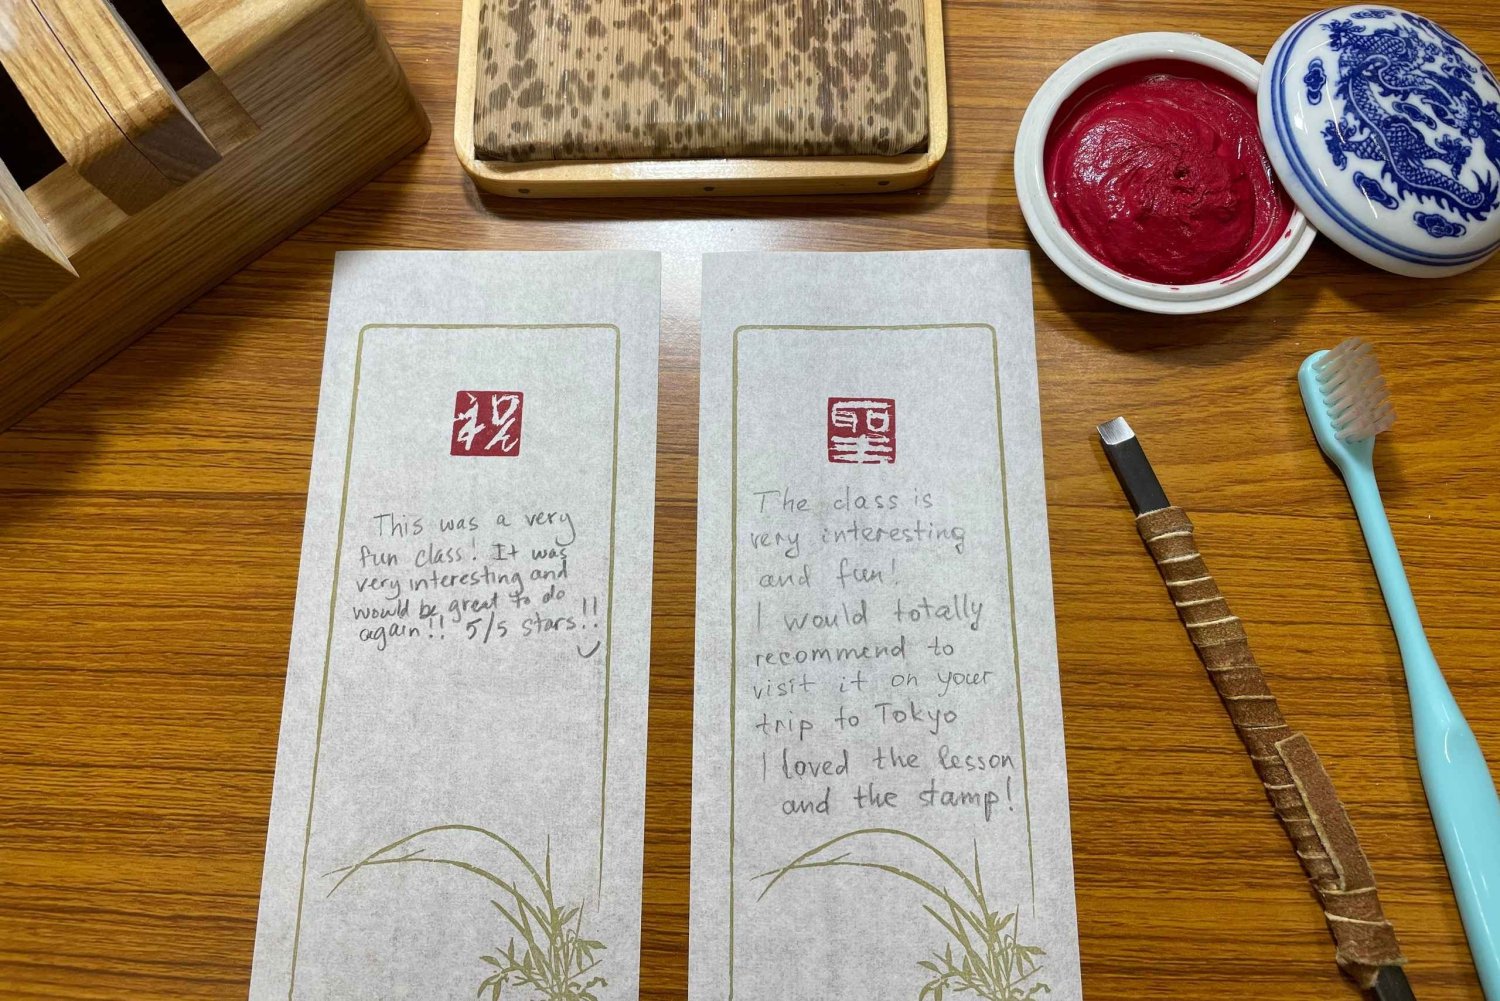 祝
This was a very
fun class! It was
very interesting and
would be great to do
again!! 5/5 stars!!
聖
The class is
very interesting
and fun!
I would totally
recommend to
visit it on your
trip to Tokyo
I loved the lesson
and the stamp!